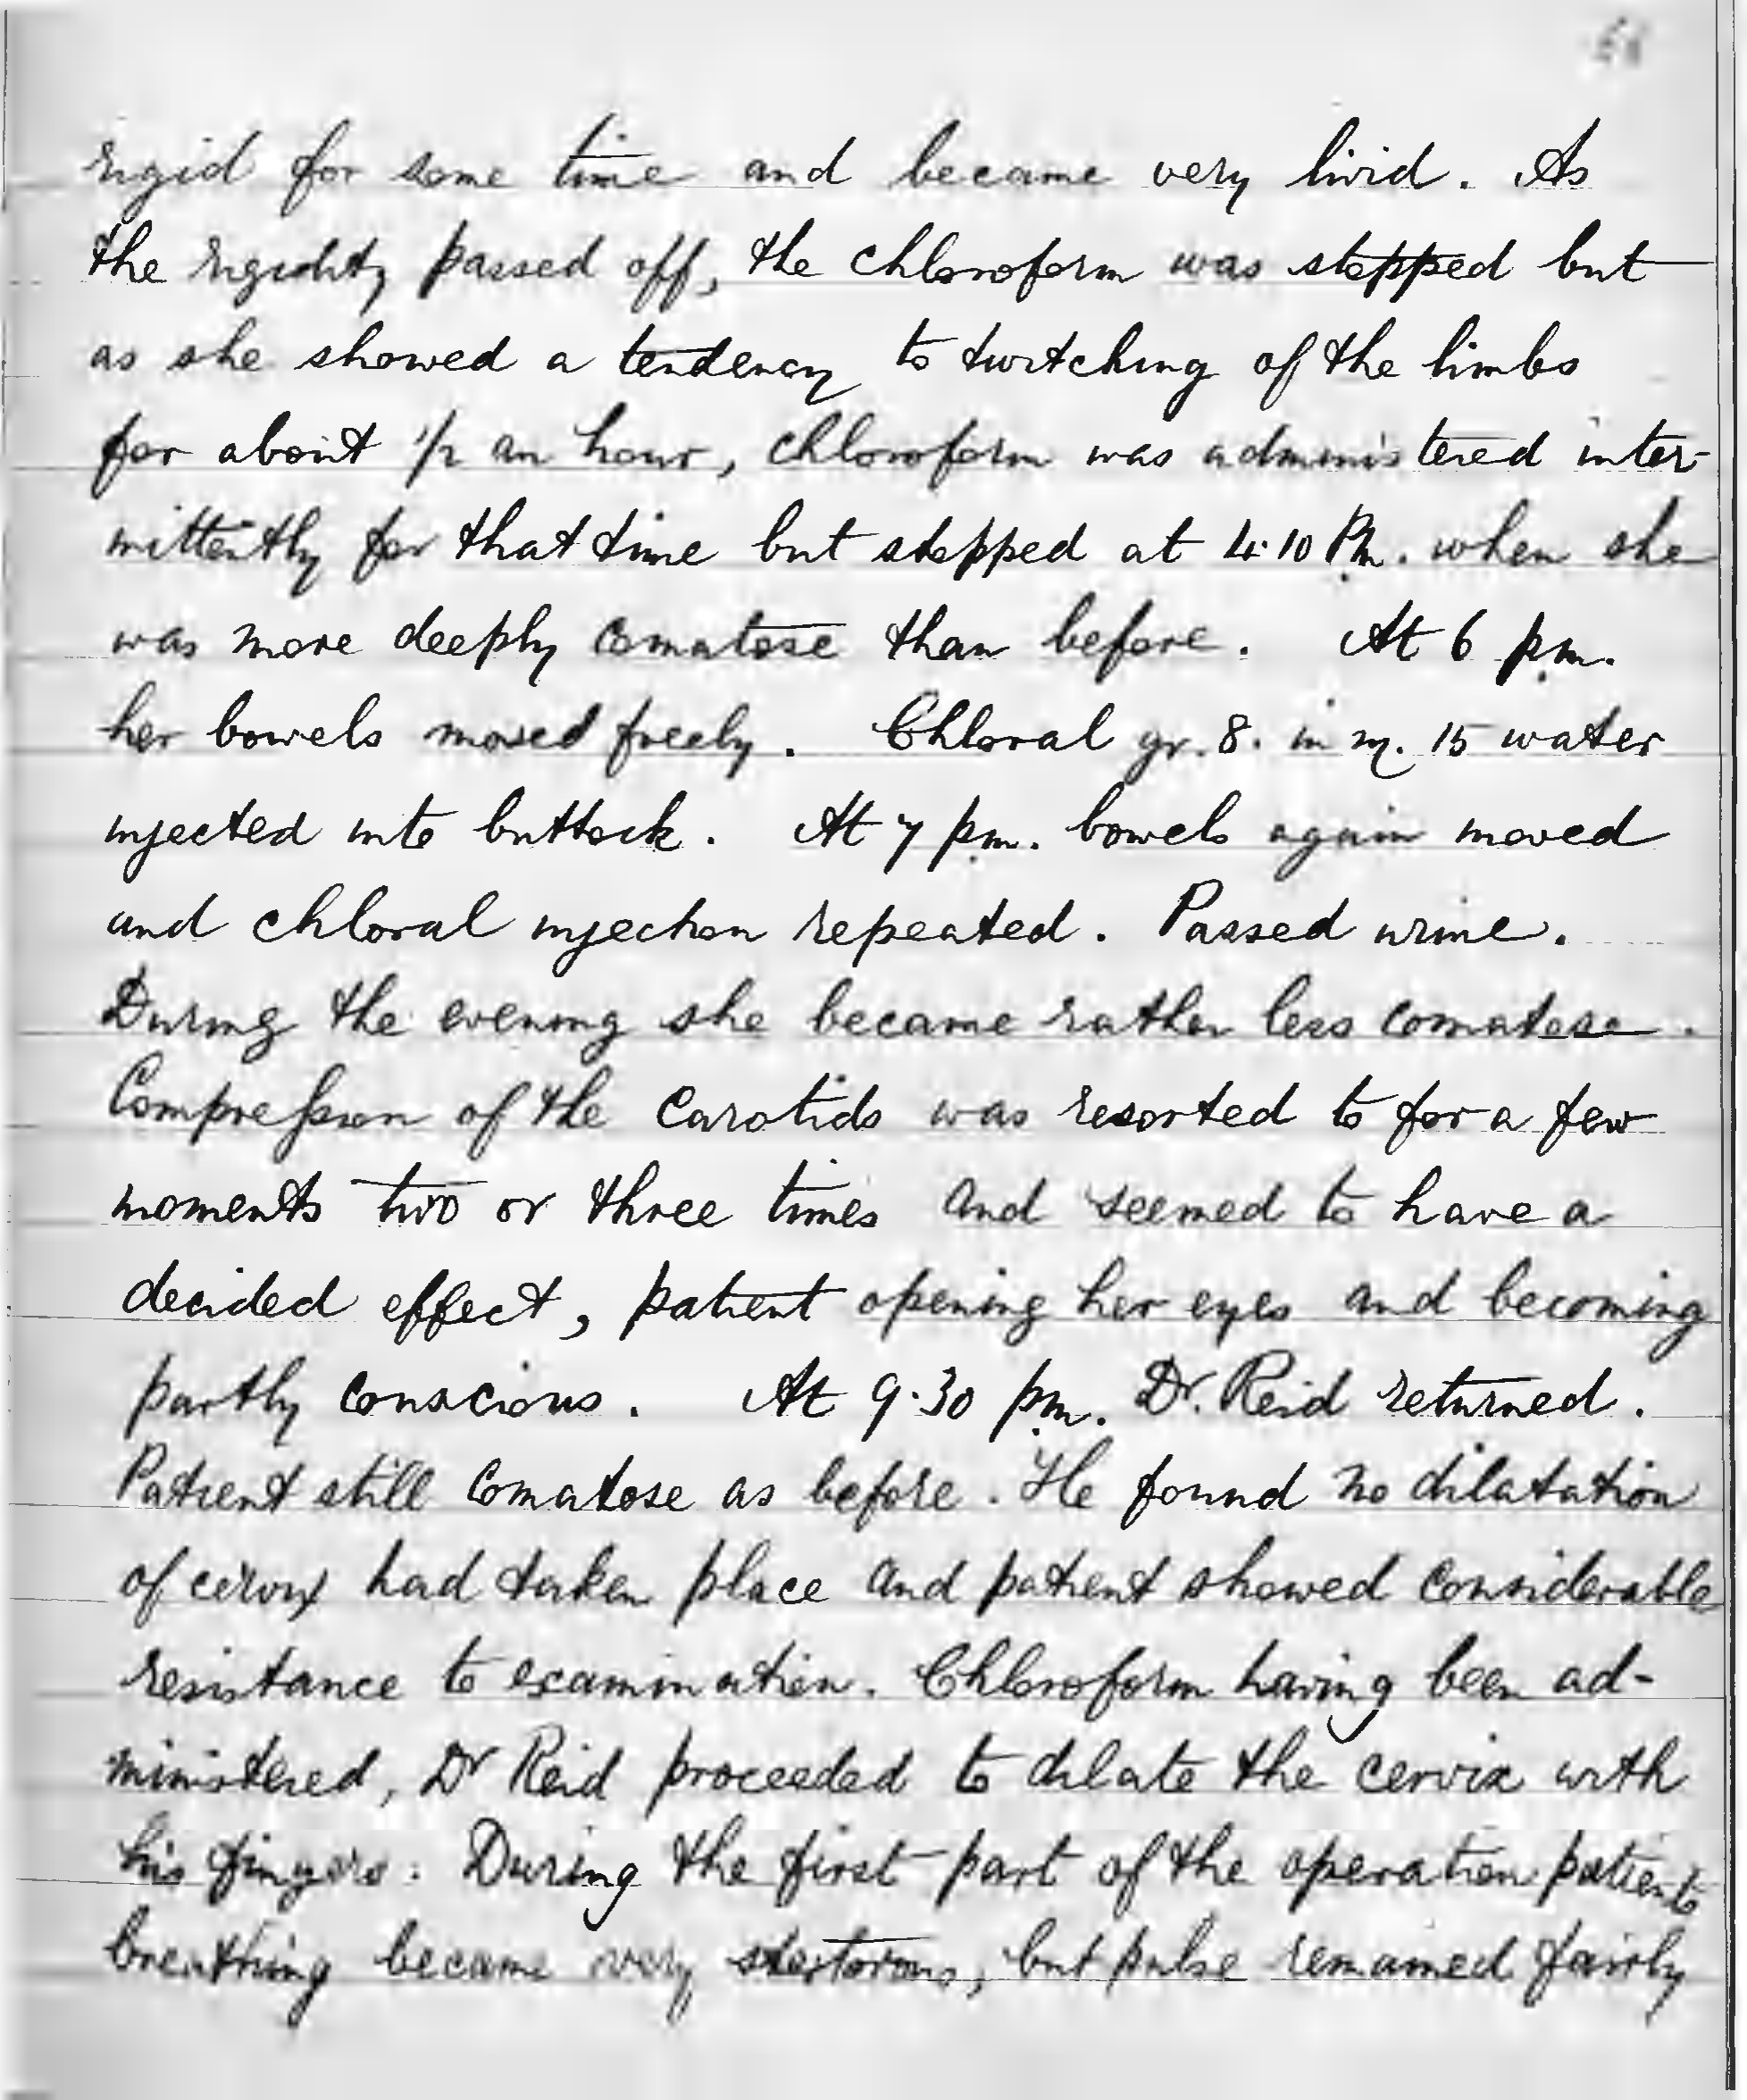 rigid for some time and became very livid. As
the rigidity passed off, the chloroform was stopped but
as she showed a tendency to twitching of the limbs
for about 1/2 an hour, chloroform was administered inter-
mittently for that time but stopped at 4.10 P.m. when she
was more deeply comatose than before. At 6 p.m.
her bowels moved freely. Chloral gr. 8. in m. 15 water
injected into buttock. At 7 p.m. bowels again moved
and chloral injection repeated. Passed urine.
During the evening she became rather less comatose.
Compression of the carotids was resorted to for a few
moments two or three times and seemed to have a
decided effect, patient opening her eyes and becoming
partly conscious. At 9.30 p.m. Dr. Reid returned.
Patient still comatose as before. He found no dilatation
of cervix had taken place and patient showed considerable
resistance to examination. Chloroform having been ad-
ministered, Dr Reid proceeded to dilate the cervix with
his fingers. During the first part of the operation patients
breathing became very stertorous, but pulse remained fairly